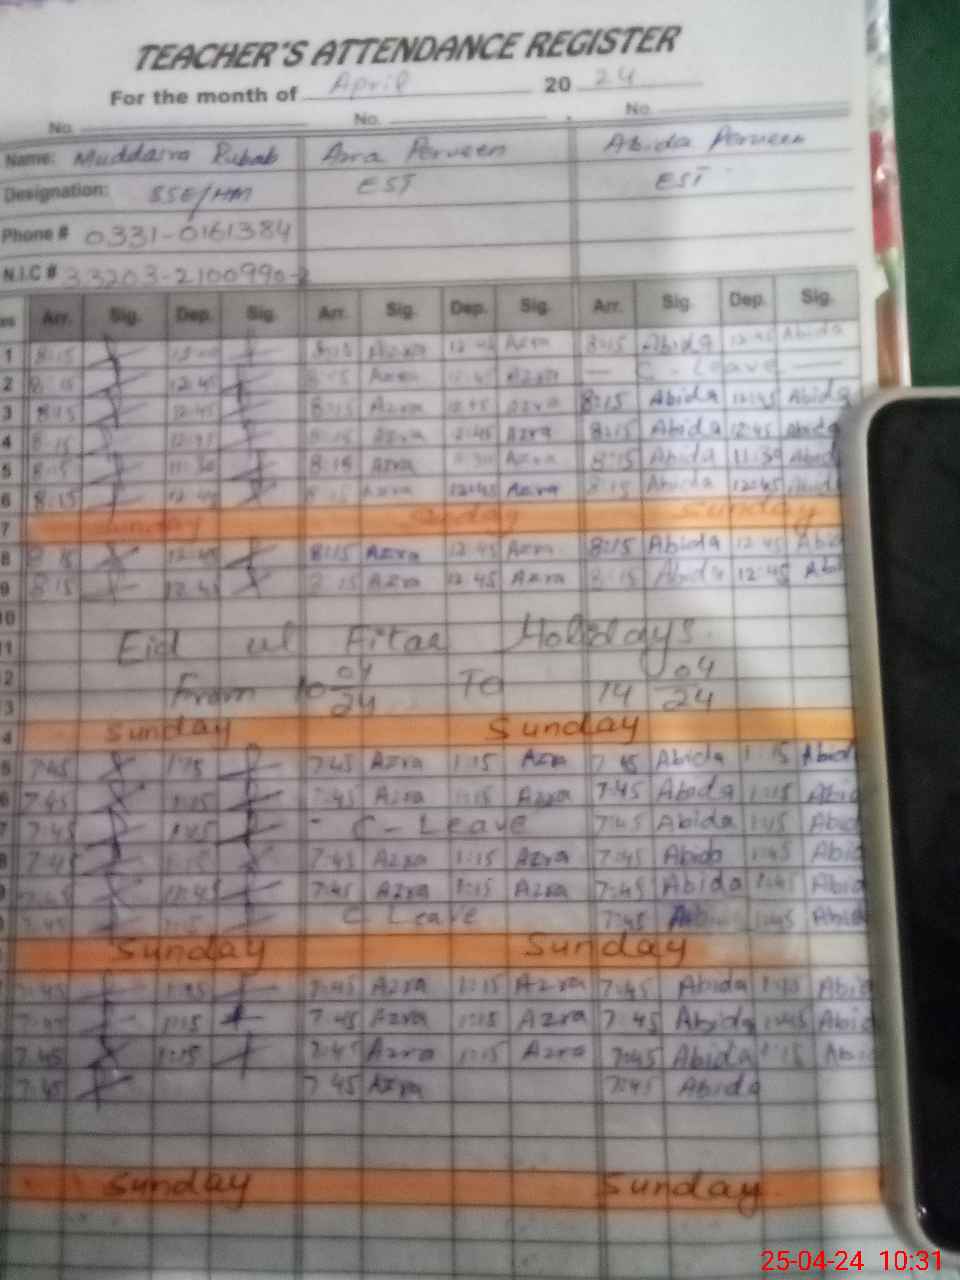 TEACHER'S ATTENDANCE REGISTER
For the month of April 20 24
No. No. No.
Name: Muddasra Rubab Azra Perveen Abida Perveen
Designation: SSE/HM EST EST
Phone # 0331-0161384
N.I.C # 33203-2100990-2
Arr. Sig. Dep. Sig. Arr. Sig. Dep. Sig. Arr. Sig. Dep. Sig.
1 8:15 8:15 Azra 12:45 Azra 8:15 Abida 12:45 Abida
2 8:15 12:45 8:15 Azra 12:45 Azra — C-Leave —
3 8:15 12:45 8:15 Azra 12:45 Azra 8:15 Abida 12:45 Abida
4 8:15 12:45 8:15 Azra 12:45 Azra 8:15 Abida 12:45 Abida
5 8:15 11:30 8:15 Azra 11:30 Azra 8:15 Abida 11:30 Abida
6 8:15 12:45 8:15 Azra 12:45 Azra 8:15 Abida 12:45 Abida
7 Sunday Sunday Sunday
8 8:15 12:45 8:15 Azra 12:45 Azra 8:15 Abida 12:45 Abid
9 8:15 12:45 8:15 Azra 12:45 Azra 8:15 Abida 12:45 Abi
10
11 Eid ul Fitar Holidays
2 From 10 04/24 To 14 04/24
3
4 Sunday Sunday
5 7:45 1:15 7:45 Azra 1:15 Azra 7:45 Abida 1:15 Abid
6 7:45 1:15 7:45 Azra 1:15 Azra 7:45 Abida 1:15 Abid
7 7:45 - C-Leave 7:45 Abida 1:45 Abid
8 7:45 1:15 7:45 Azra 1:15 Azra 7:45 Abida 1:45 Abid
9 7:45 7:45 Azra 1:15 Azra 7:45 Abida 1:45 Abid
7:45 1:15 C Leave 7:45 1:45 Abid
Sunday Sunday
7:45 7:45 Azra 1:15 Azra 7:45 Abida Abid
7:45 1:15 7:45 Azra 1:15 Azra 7:45 Abida 1:45 Abid
7:45 1:15 7:45 Azra 1:15 Azra 7:45 Abida 1:15 Abi
7:45 7:45 Azra 7:45 Abida
Sunday Sunday
25-04-24 10:31